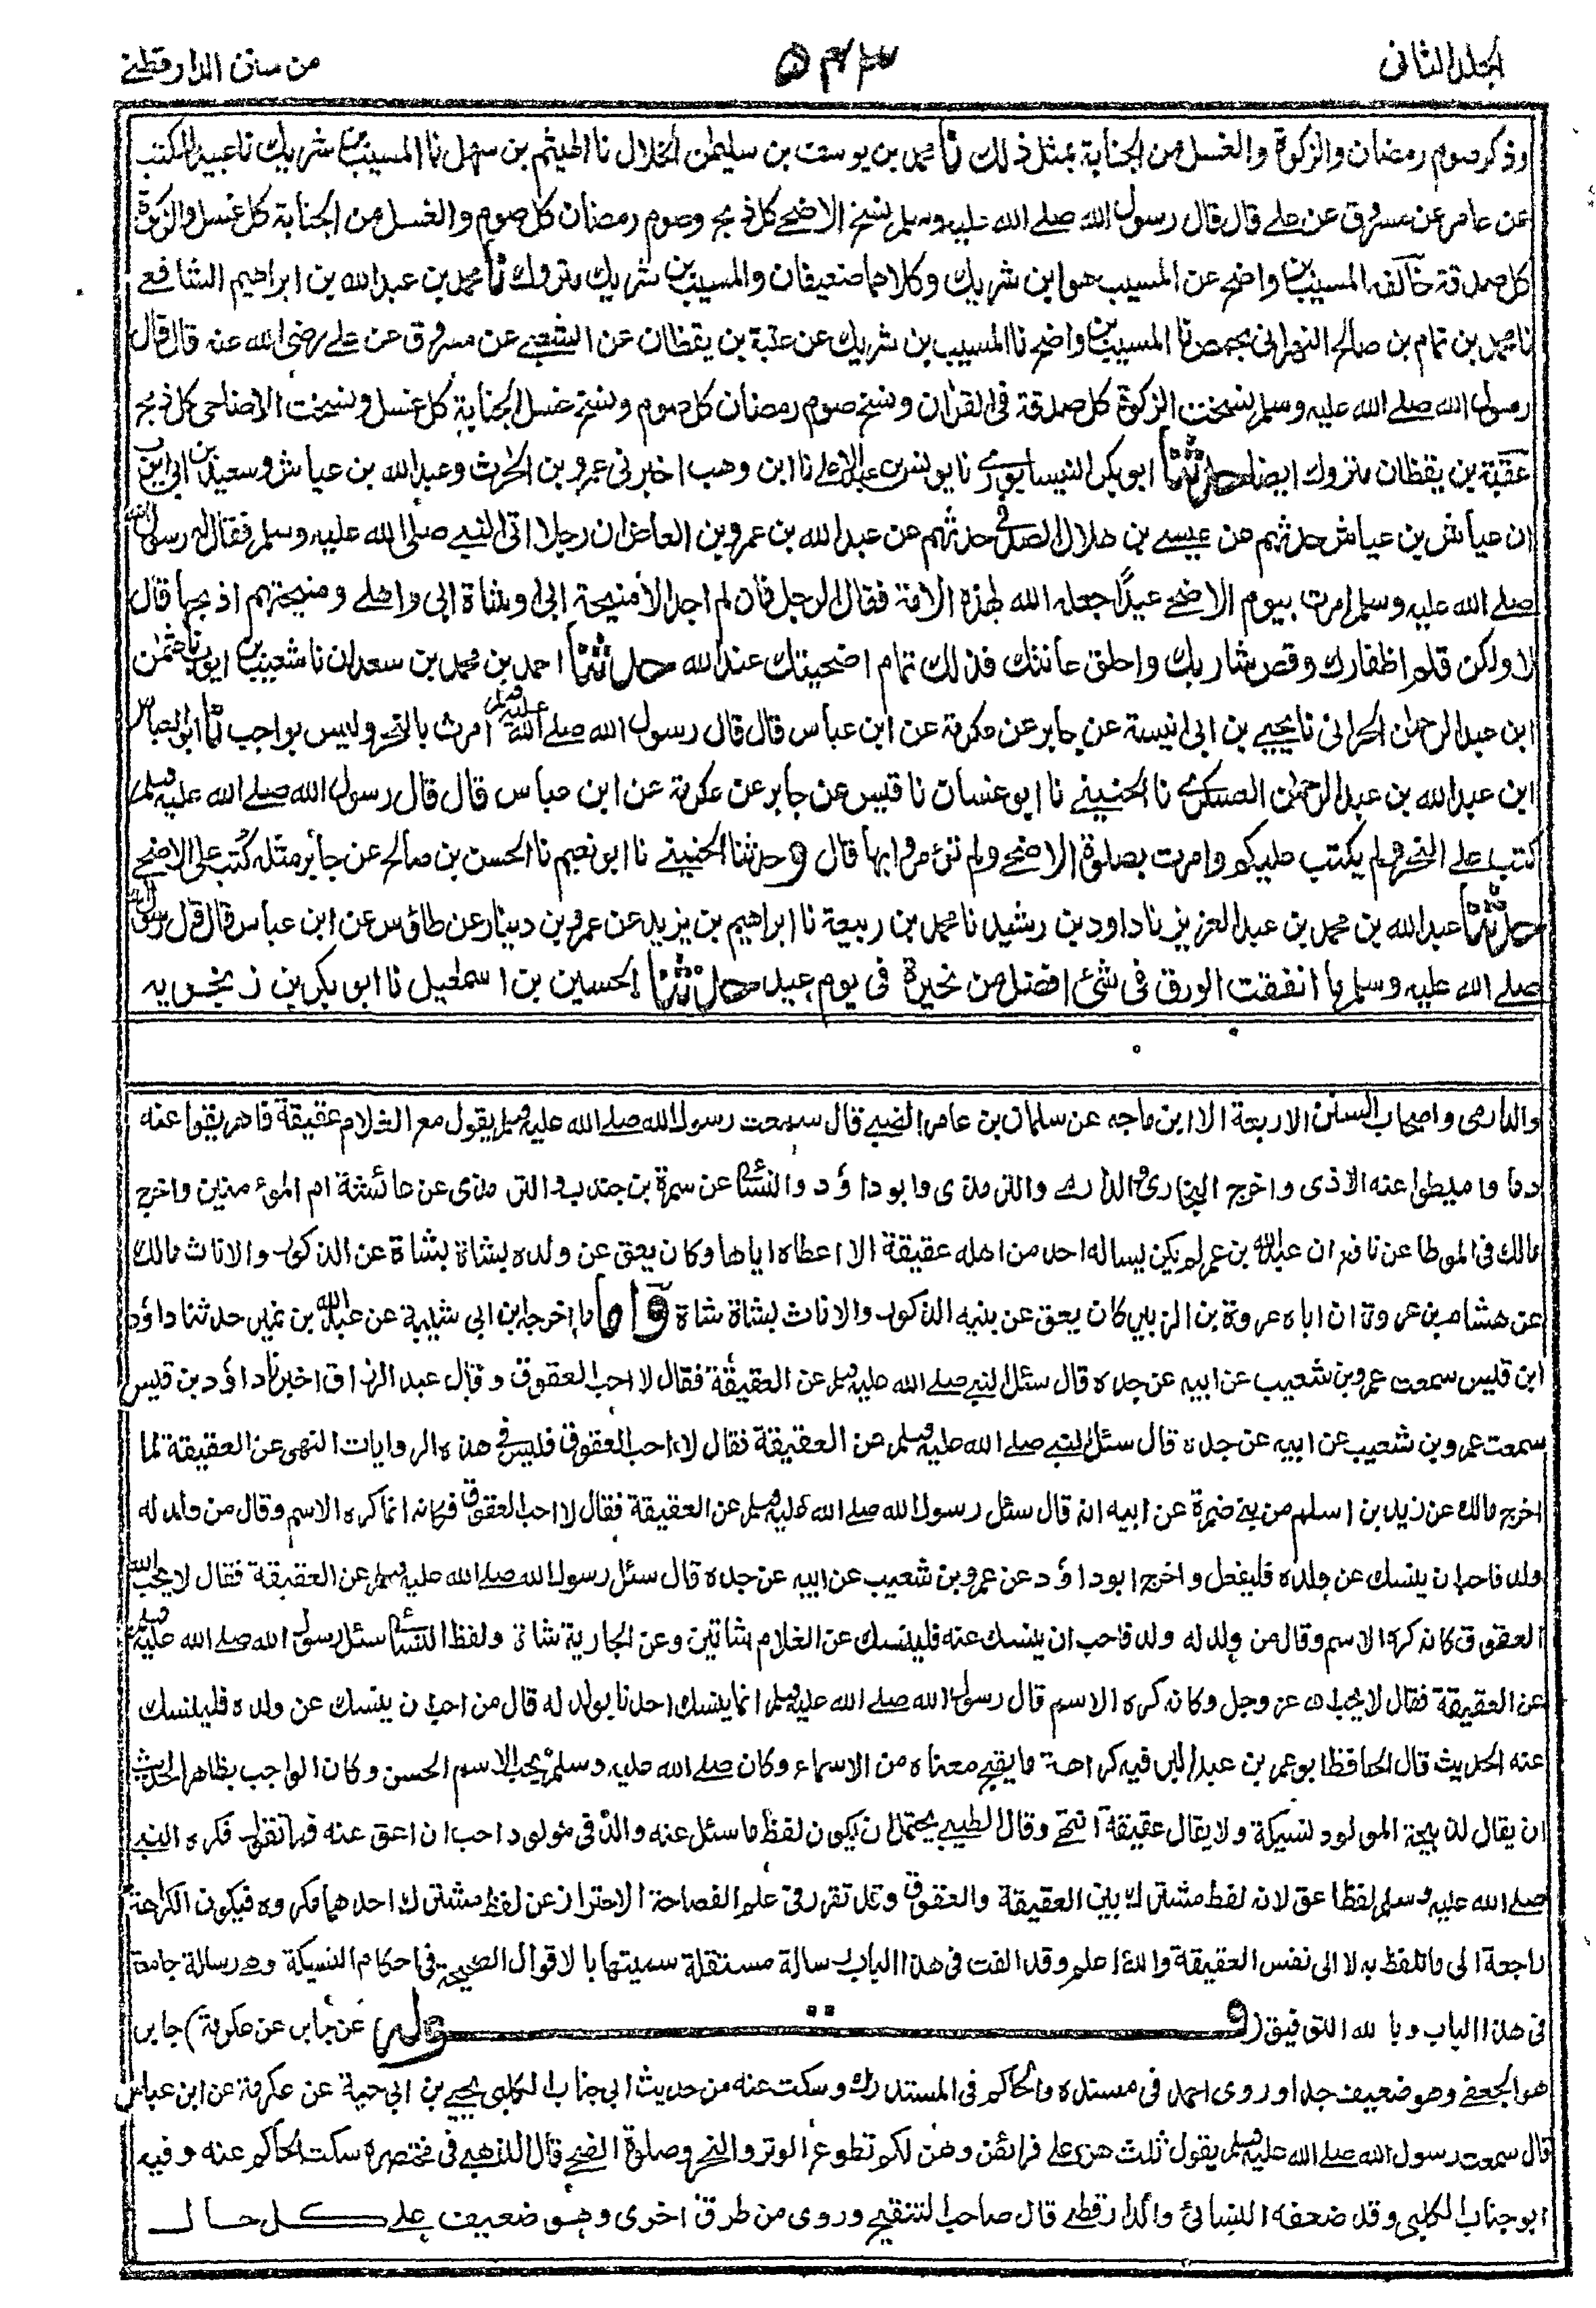 الجلد الثانی ۵۴۳ من سنن الدارقطنے
وذكر صوم رمضان والزكوة والغسل من الجنابة بمثل ذلك نا محمد بن يوسف بن سليمٰن الخلال نا الهيثم بن سهل نا المسيب بن شريك نا عبيد المكتب
عن عامر عن مسروق عن علے قال قال رسول الله صلے الله عليه وسلم نسخ الاضحے كل ذبح وصوم رمضان كل صوم والغسل من الجنابة كل غسل والزكوة
كل صدقة خالفه المسيب بن واضح عن المسيب هو ابن شريك وكلاهما ضعيفان والمسيب بن شريك متروك نا محمد بن عبد الله بن ابراهيم الشافعے
نا محمد بن تمام بن صالح النهرانی بحمص نا المسيب بن واضح نا المسيب بن شريك عن عتبة بن يقظان عن الشعبے عن مسروق عن علے رضی الله عنه قال قال
رسول الله صلے الله عليه وسلم نسخت الزكوة كل صدقة فی القراٰن ونسخ صوم رمضان كل صوم ونسخ غسل الجنابة كل غسل ونسخت الاضاحی كل ذبح
عقبة بن يقظان متروك ايضا حدثنا ابو بكر النيسابورے نا يونس بن عبد الاعلے نا ابن وهب اخبرنی عمرو بن الحٰرث وعبد الله بن عياش وسعيد بن ابی ايوب
ان عياش بن عياش حدثهم عن عيسے بن هلال الصدفی حدثهم عن عبد الله بن عمرو بن العاص ان رجلا اتی النبے صلی الله عليه وسلم فقال له رسول الله
صلے الله عليه وسلم امرت بيوم الاضحے عيدًا جعله الله لهذه الامة فقال الرجل فان لم اجد الا منيحة ابی او شاة ابی واهلے ومنيحتهم اذبحها قال
لا ولكن قلم اظفارك وقص شاربك واحلق عانتك فذلك تمام اضحيتك عند الله حدثنا احمد بن محمد بن سعدان نا شعيب بن ايوب نا عثمٰن
ابن عبد الرحمٰن الحرانی نا يحيے بن ابی انيسة عن جابر عن عكرمة عن ابن عباس قال قال رسول الله صلے الله عليه وسلم امرت بالنحر وليس بواجب نا ابو العباس
ابن عبد الله بن عبد الرحمٰن العسكرے نا الحنينے نا ابو غسان نا قيس عن جابر عن عكرمة عن ابن عباس قال قال رسول الله صلے الله عليه وسلم
كتب علے النحر ولم يكتب عليكم وامرت بصلوة الاضحے ولم تؤمروا بها قال وحدثنا الحنينے نا ابو نعيم نا الحسن بن صالح عن جابر مثله كُتب علی الاضحے
حدثنا عبد الله بن محمد بن عبد العزيز نا داود بن رشيد نا محمد بن ربيعة نا ابراهيم بن يزيد عن عمرو بن دينار عن طاؤس عن ابن عباس قال قال رسول الله
صلے الله عليه وسلم ما انفقت الورق فی شیٔ افضل من نحيرة فی يوم عيد حدثنا الحسين بن اسمٰعيل نا ابو بكر بن زنجويه
والدارمی واصحاب السنن الاربعة الا ابن ماجه عن سلمان بن عامر الضبے قال سمعت رسول الله صلے الله عليه وسلم يقول مع الغلام عقيقة فاهريقوا عنه
دما واميطوا عنه الاذی واخرج البخاری والدارمے والترمذی وابو داؤد والنسائی عن سمرة بن جندب والترمذی عن عائشة ام المؤمنين واخرج
مالك فی الموطا عن نافع ان عبد الله بن عمر لم يكن يساله احد من اهله عقيقة الا اعطاه اياها وكان يعق عن ولده بشاة بشاة عن الذكور والاناث مالك
عن هشام بن عروة ان اباه عروة بن الزبير كان يعق عن بنيه الذكور والاناث بشاة شاة واما ما اخرجه ابن ابی شيبة عن عبد الله بن نمير حدثنا داؤد
ابن قيس سمعت عمرو بن شعيب عن ابيه عن جده قال سئل النبے صلے الله عليه وسلم عن العقيقة فقال لا احب العقوق وقال عبد الرزاق اخبرنا داؤد بن قيس
سمعت عمرو بن شعيب عن ابيه عن جده قال سئل النبے صلے الله عليه وسلم عن العقيقة فقال لا احب العقوق فليس فی هذه الروايات النهی عن العقيقة لما
اخرج مالك عن زيد بن اسلم من بنے ضمرة عن ابيه انه قال سئل رسول الله صلے الله عليه وسلم عن العقيقة فقال لا احب العقوق فكانه انما كره الاسم وقال من ولد له
ولد فاحب ان ينسك عن ولده فليفعل واخرج ابو داؤد عن عمرو بن شعيب عن ابيه عن جده قال سئل رسول الله صلے الله عليه وسلم عن العقيقة فقال لا يحب الله
العقوق كانه كره الاسم وقال من ولد له ولد فاحب ان ينسك عنه فلينسك عن الغلام شاتين وعن الجارية شاة ولفظ النسائی سئل رسول الله صلے الله عليه وسلم
عن العقيقة فقال لا يحب الله عز وجل وكانه كره الاسم قال رسول الله صلے الله عليه وسلم انما ينسك احدنا يولد له قال من احب ان ينسك عن ولده فلينسك
عنه الحديث قال الحافظ ابو عمر بن عبد البر فيه كراهة ما يقبح معناه من الاسماء وكان صلے الله عليه وسلم يحب الاسم الحسن وكان الواجب بظاهر الحديث
ان يقال لذبيحة المولود نسيكة ولا يقال عقيقة انتهے وقال الطيبے يحتمل ان يكون لفظ ما سئل عنه والدٌ فی مولود احب ان اعق عنه فما تقول فكره النبے
صلے الله عليه وسلم لفظ اعق لانه لفظ مشترك بين العقيقة والعقوق وقد تقرر فی علم الفصاحة الاحتراز عن لفظ مشترك احدهما مكروه فيكون الكراهة
راجعة الی ما تلفظ به لا الی نفس العقيقة والله اعلم وقد الفت فی هذا الباب رسالة مستقلة سميتها بالاقوال الصحيحة فی احكام النسيكة وهے رسالة جامعة
فی هذا الباب وبالله التوفيق (قوله عن جابر عن عكرمة) جابر
هو الجعفے وهو ضعيف جدا وروی احمد فی مسنده والحاكم فی المستدرك وسكت عنه من حديث ابی جناب الكلبی يحيے بن ابی حية عن عكرمة عن ابن عباس
قال سمعت رسول الله صلے الله عليه وسلم يقول ثلث هن علے فرائض وهن لكم تطوع الوتر والنحر وصلوة الضحے قال الذهبے فی مختصره سكت الحاكم عنه وفيه
ابو جناب الكلبی وقد ضعفه النسائی والدارقطنے قال صاحب التنقيح وروی من طرق اخری وهو ضعيف علے كل حال